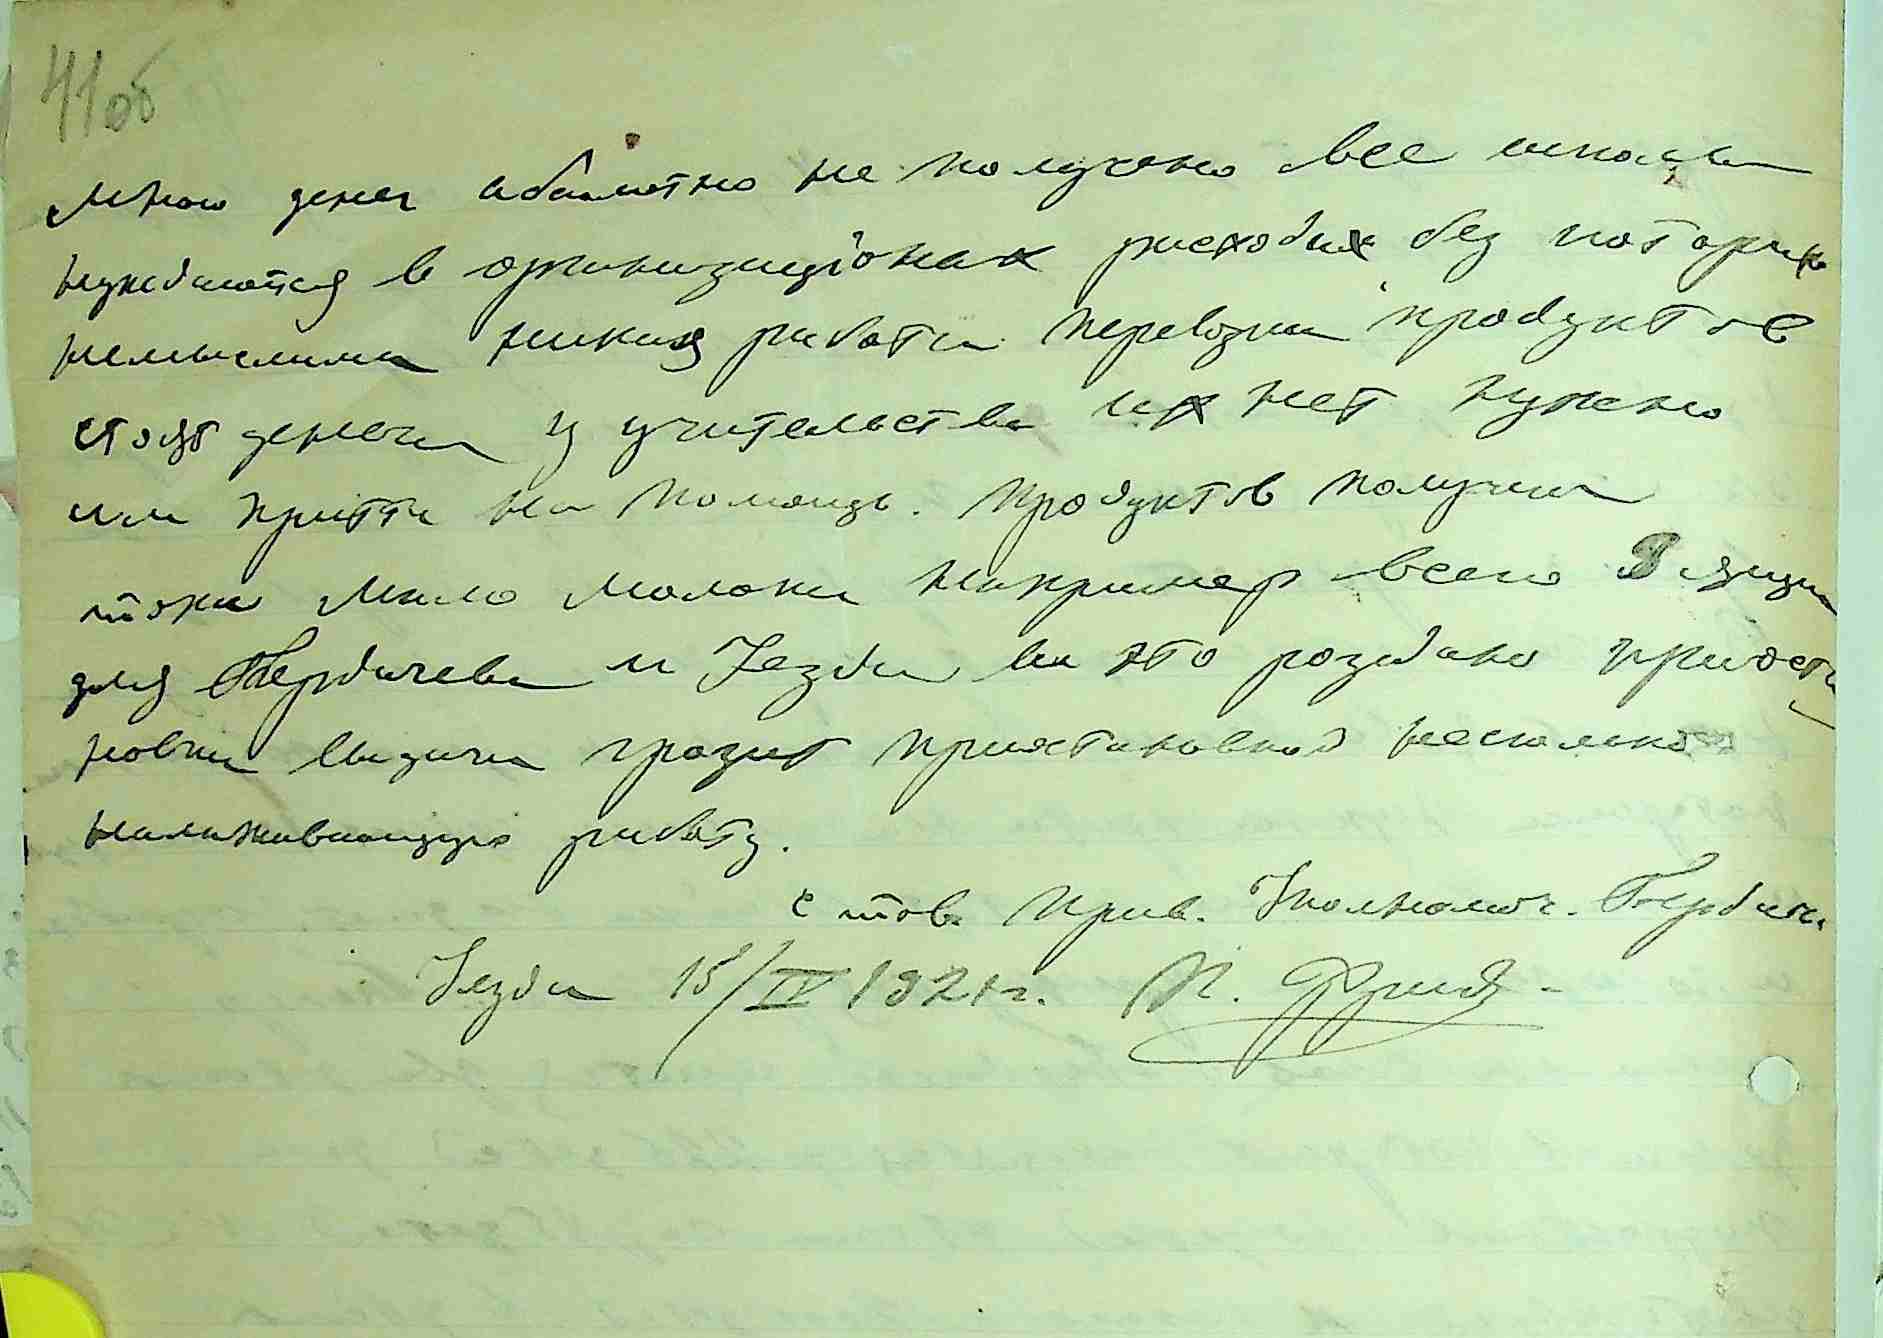 41об
мною денег абсолютно не получено все школы
нуждаются в организационых расходах без которых
немыслима никая работа перевозки продуктов
стоят деньги у учительства их нет нужно
им притти на помощь. Продуктов получил
тоже мало молока например всего 3 ящи
для Бердичева и Уезда все это роздано приоста
новка выдачи грозит приостановкой несколько
налаживающую работу.
с тов. прив. Уполномоч. Бердич.
Уезда 15/IV 1921 г. И. Фрид